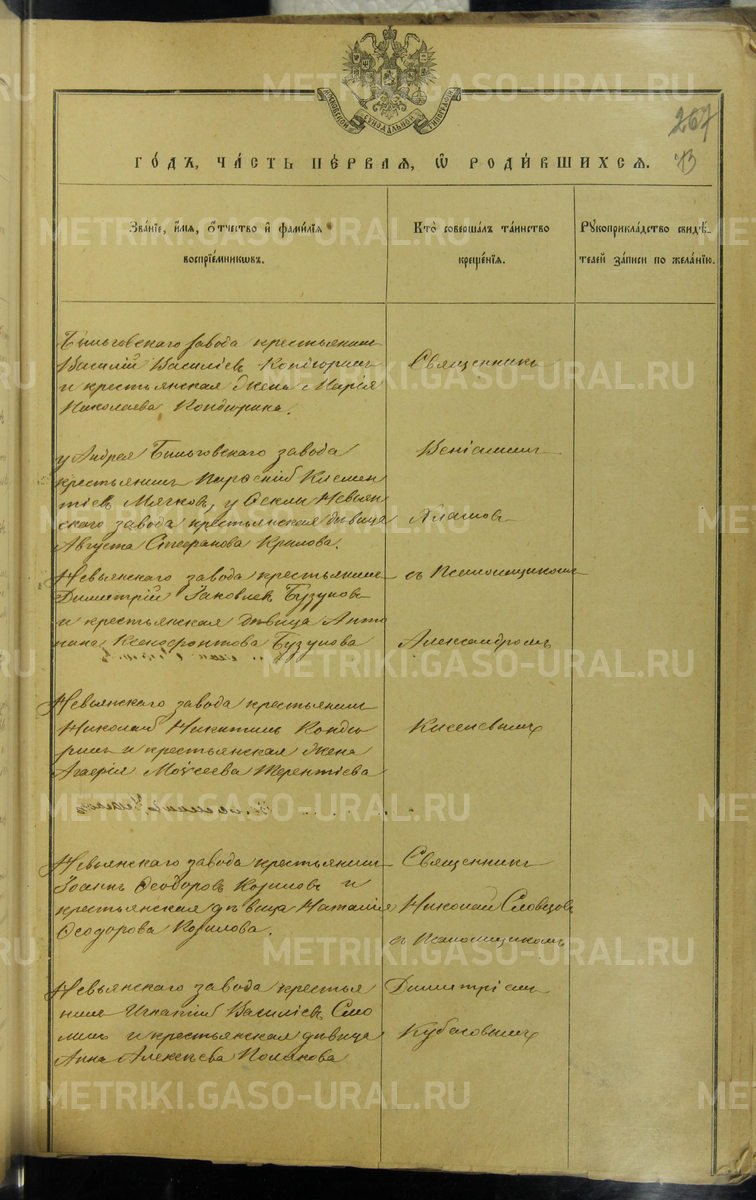 МОСКОВСКОЙ СѴНОДАЛЬНОЙ ТИПОГРАФІИ
267
ГО́ДЪ, ЧА́СТЬ ПЕ́РВАЯ, Ѡ҆ РОДИ́ВШИХСЯ.
Зва́нїе, и҆́мя, ѻ҆́тчество и҆ фами́лїя
воспрїе́мникѡвъ.
Кто̀ соверша́лъ та́инство
креще́нїя.
Рꙋкоприкла́дство свидѣ́-
телей за́писи по жела́нїю.
Быньговскаго завода крестьянинъ
Василій Василіевъ Кондюринъ
и крестьянская жена Марія
Николаева Кондюрина.
Священникъ
у Андрея Быньговскаго завода
крестьянинъ Климен
тіевъ Мягковъ, у Ѳеклы Невьян
скаго завода крестьянская дѣвица
Августа Стефанова Крылова.
Веніаминъ
Невьянскаго завода крестьянинъ
Димитрій Іаковлевъ Бузуновъ
и крестьянская дѣвица Анто
нина Ксенофонтова Бузунова
съ Псаломщикомъ
Александромъ
Невьянскаго завода крестьянинъ
Николай Никитинъ Кондю
ринъ и крестьянская жена
Агафія Моѵсеева Терентіева
Киселевымъ
Невьянскаго завода крестьянинъ
Іоаннъ Ѳеодоровъ Козиловъ и
крестьянская дѣвица Наталія
Ѳеодорова Козилова.
Священникъ
Николай Словцовъ
съ Псаломщикомъ
Невьянскаго завода крестья
нинъ Игнатій Василіевъ Смо
линъ и крестьянская дѣвица
Анна Алексѣева Полякова
Димитріемъ
Кубасовымъ
METRIKI.GASO-URAL.RU